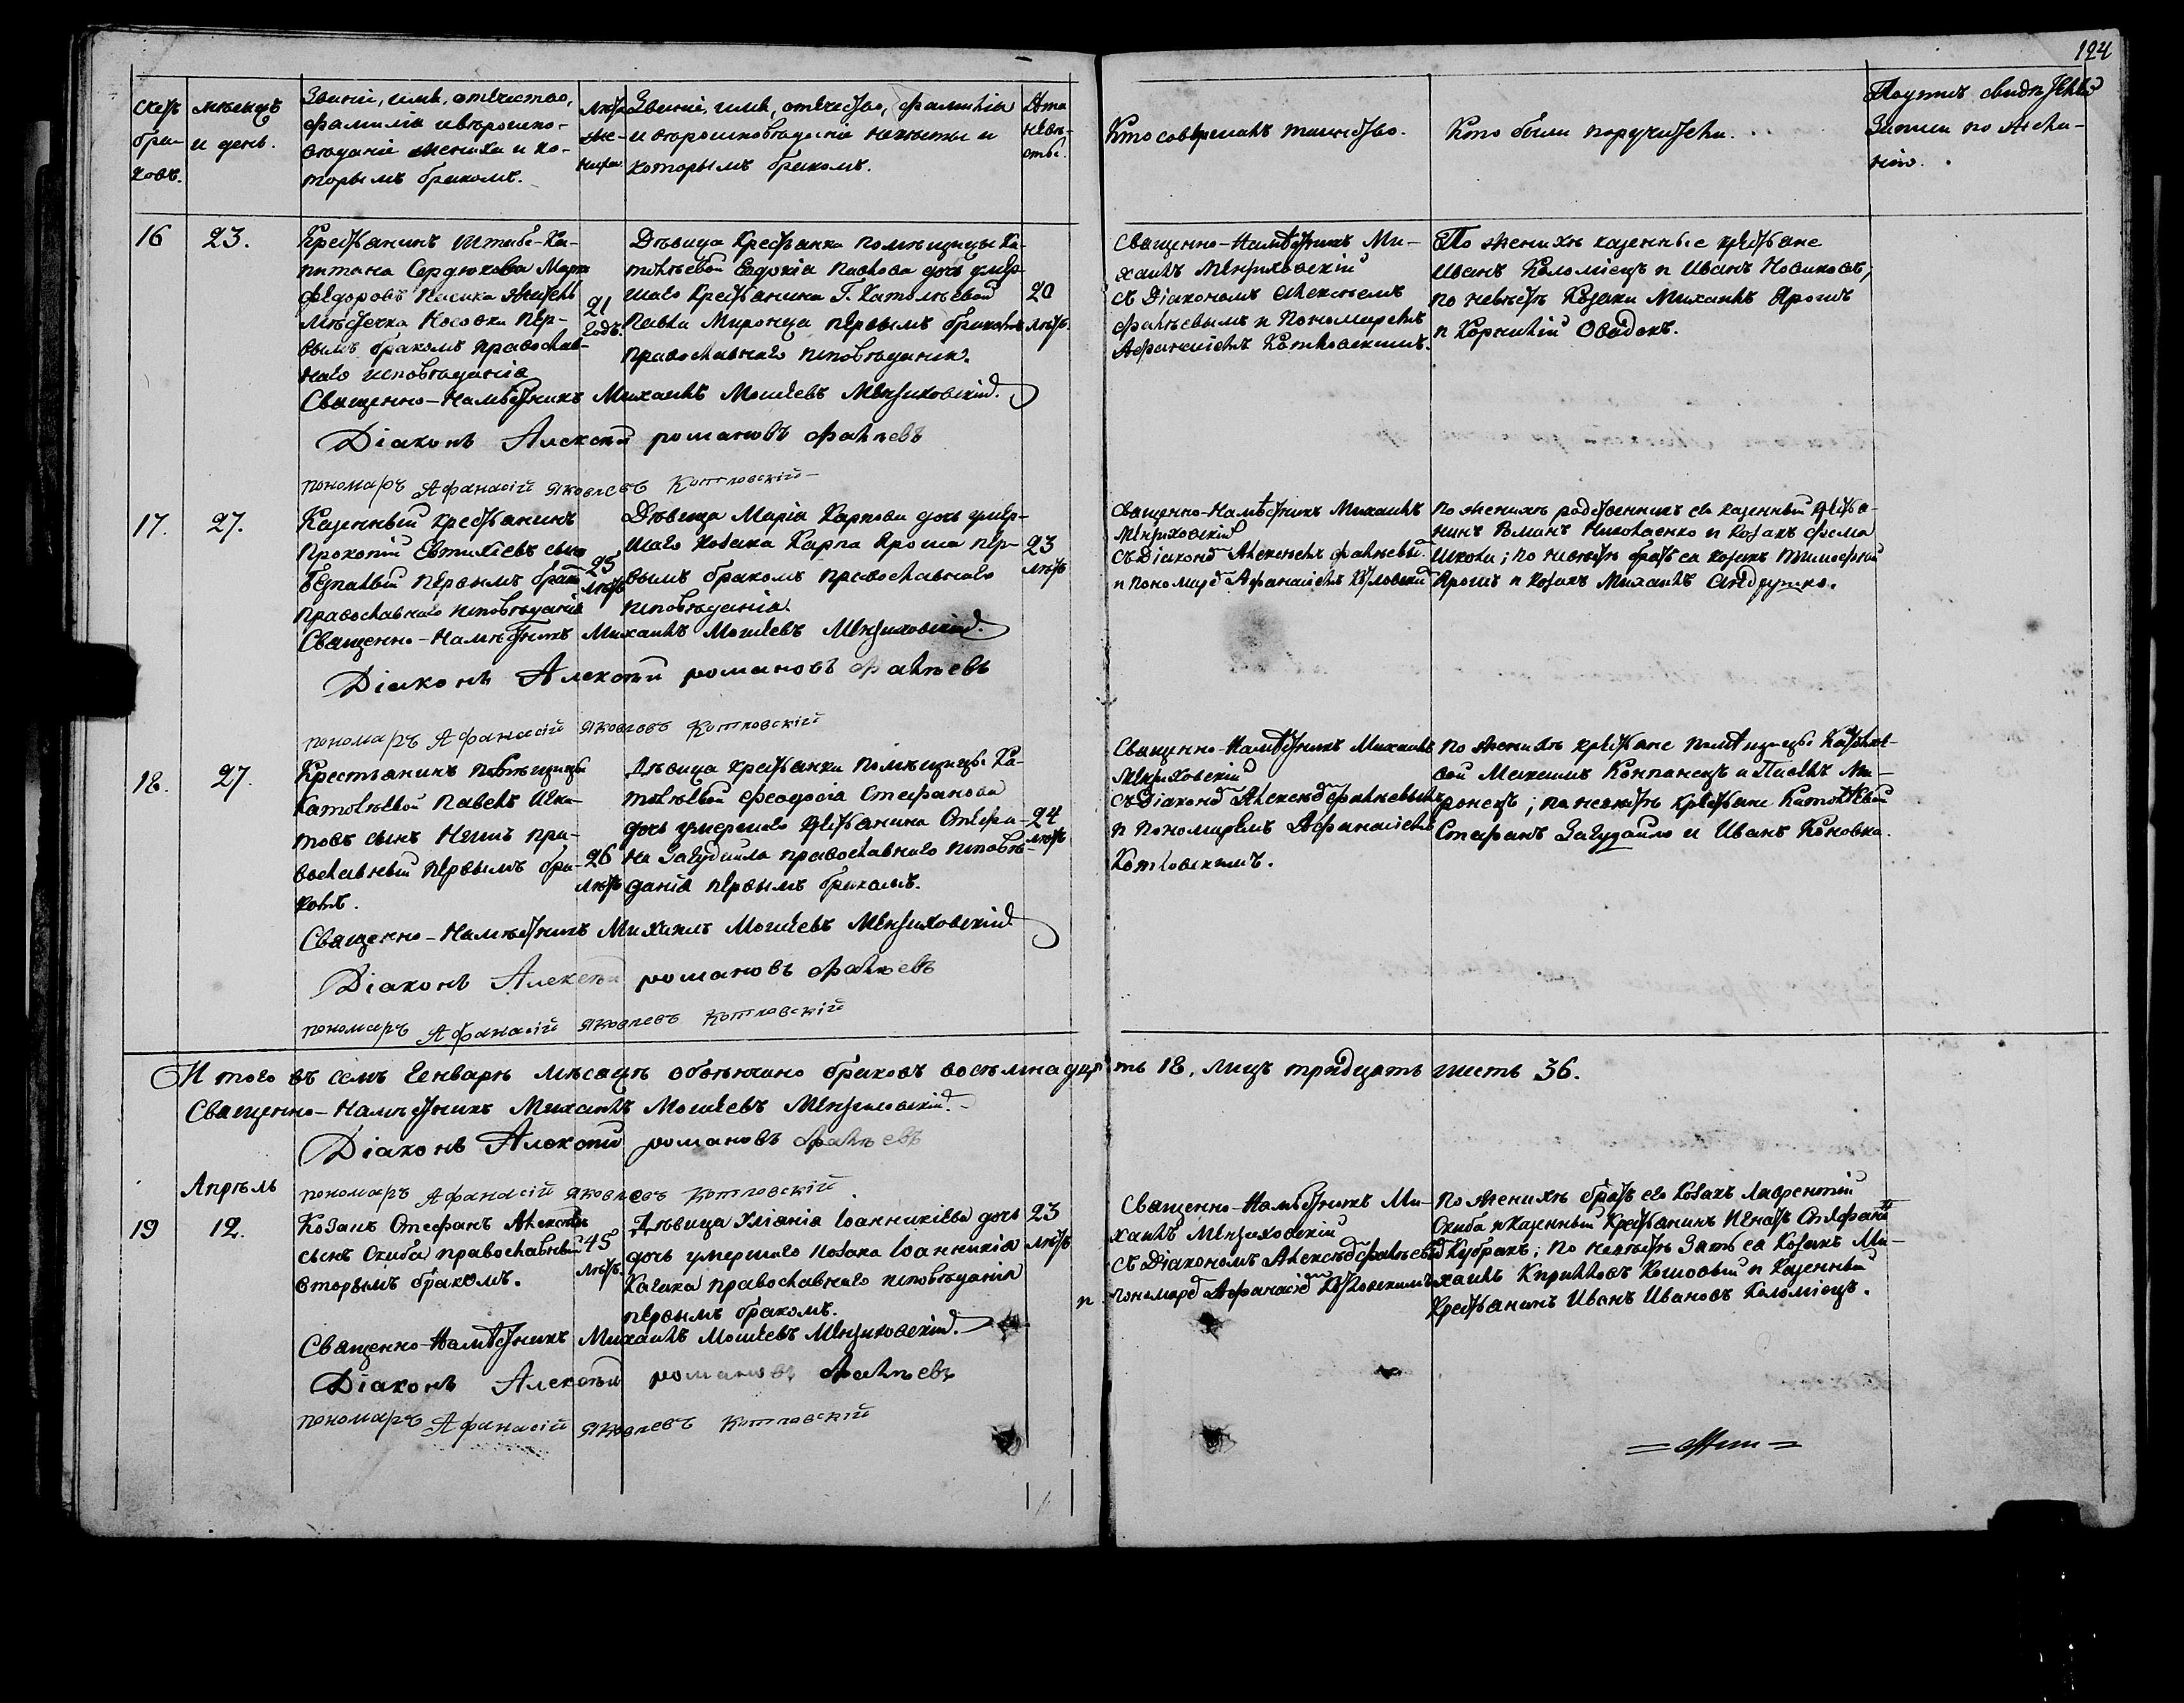 124
Счетъ браковъ.
мѣсяцъ и день.
Званіе, имя, отчество, фамилія и вѣроисповѣданіе жениха и которымъ бракомъ.
Лѣта жениха
Званіе, имя, отчество, фамилія и вѣроисповѣданіе невѣсты и которымъ бракомъ.
Лѣта невѣсты.
Кто совершалъ таинство.
Кто были поручители.
записи по желанію.
16
23.
Крестьянинъ Штабс-Ка-
питана Сердюкова Марко
Федоровъ житель
мѣстечка Носовки пер-
вымъ бракомъ православ-
наго исповѣданія
21
годъ.
Дѣвица Крестьянка помѣщицы Ка-
Евдокія Павлова дочь умер-
шаго Крестьянина Г.
Павла Миронца первымъ бракомъ
православнаго исповѣданія.
20
лѣтъ.
Священно-Намѣстникъ Ми-
хаилъ Мензиховскій
съ Діакономъ Алексѣемъ
Фалѣевымъ и Пономаремъ
Афанасіемъ Котловскимъ.
По женихѣ казенные крестьяне
Иванъ Коломіецъ и Иванъ Новиковъ,
по невѣстѣ Козаки Михаилъ Ярошъ
и Корнилій Овадокъ.
Священно-Намѣстникъ Михаилъ Моисеевъ Мензиховскій.
Діаконъ Алексѣй романовъ Фалѣевъ
пономаръ Афанасій Яковлевъ Котловскій
17.
27.
Казенный крестьянинъ
Прокопій Евтихіевъ сынъ
первымъ брак
православнаго исповѣданія
25
лѣтъ
Дѣвица Марія Карпова дочь умер-
шаго козака Карпа Яроша пер-
вымъ бракомъ православнаго
исповѣданія.
23
лѣтъ
Священно-Намѣстникъ Михаилъ
Мензиховскій
съ Діаконо Алексѣемъ Фалѣевы
и пономаре Афанасіемъ Котловски
По женихѣ родственникъ его казенный крестья-
нинъ Романъ Николаенко и козакъ Фома
Школа; по невѣстѣ братъ ея козакъ Тимофей
Ярошъ и козакъ Михаилъ Андрушко.
Священно-Намѣстникъ Михаилъ Моисеевъ Мензиховскій.
Діаконъ Алексѣй романовъ Фалѣевъ
пономаръ Афанасій Яковлевъ Котловскій
18.
27.
Крестьянинъ помѣщицы
Павелъ
сынъ пра-
вославный первымъ бра-
комъ.
26
лѣтъ
Дѣвица крестьянка помѣщицы Ка-
Феодосія Стефанова
дочь умершаго крестьянина Стефа-
на Загудайла православнаго исповѣ-
данія первымъ бракомъ.
24
лѣтъ
Священно-Намѣстникъ Михаилъ
Мензиховскій
съ Діаконо Алексѣе Фалѣевымъ
и пономаремъ Афанасіемъ
Котловскимъ.
по женихѣ крестьяне помѣщицы
Максимъ Компанецъ и Павелъ Ми-
ронецъ; по невѣстѣ крестьяне
Стефанъ Загудайло и Иванъ Коновка.
Священно-Намѣстникъ Михаилъ Моисеевъ Мензиховскій
Діаконъ Алексѣй романовъ Фалѣевъ
пономаръ Афанасій Яковлевъ Котловскій
Итого въ семъ Генварѣ мѣсяцѣ обвѣнчано браковъ восемнадцать 18, лицъ тридцать шесть 36.
Священно-Намѣстникъ Михаилъ Моисеевъ Мензиховскій.
Діаконъ Алексѣй романовъ Фалѣевъ
пономаръ Афанасій Яковлевъ Котловскій
Апрѣль
19
12.
Козакъ Стефанъ Алексѣевъ
сынъ Скиба православный
вторымъ бракомъ.
45
лѣтъ.
Дѣвица Уліанія Іоанникіева дочь
дочь умершаго козака Іоанникія
православнаго исповѣданія
первымъ бракомъ.
23
лѣтъ
Священно-Намѣстникъ Ми-
хаилъ Мензиховскій
съ Діакономъ Алексѣе Фалѣевы
и пономаре Афанасіе Котловскимъ
По женихѣ братъ его козакъ Лаврентій
Скиба и казенный крестьянинъ Игнатъ Стефано
Кубракъ; по невѣстѣ зять ея козакъ Ми-
хаилъ Кирилловъ и казенный
крестьянинъ Иванъ Ивановъ Коломіецъ.
Священно-Намѣстникъ Михаилъ Моисеевъ Мензиховскій.
Діаконъ Алексѣй романовъ Фалѣевъ
пономаръ Афанасій Яковлевъ Котловскій